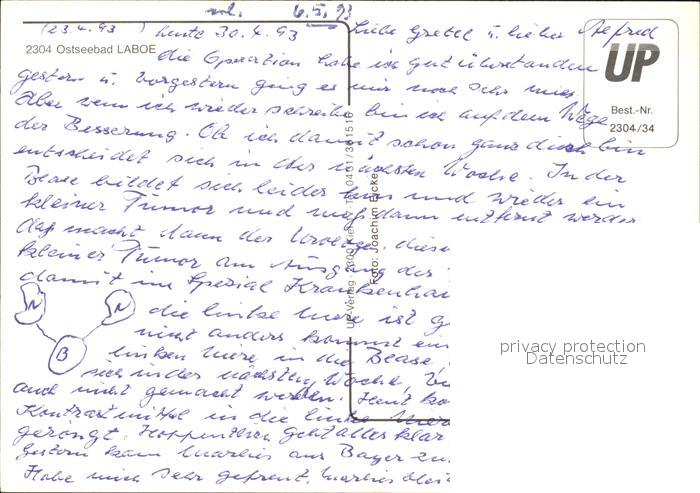 6.5.93
(23.4.93) heute 30.4.93 Liebe Gretel u. lieber Alfred
2304 Ostseebad LABOE
UP
Best.-Nr.
2304/34
die Operation habe ich gut überstanden
gestern u. vorgestern ging es mir noch sehr mies.
Aber wenn ich wieder schreibe bin ich auf dem Wege
der Besserung. Ob ich damit schon ganz durch bin
entscheidet sich in der nächsten Woche. In der
Blase bildet sich leider hin und wieder ein
kleiner Tumor und muß dann entfernt werden
das macht dann der Urologe. diese
kleiner Tumor am Ausgang der
damit im Spezial Krankenhau
N N B
die linke Niere ist
nicht anders kommt ein
linken Niere in die Blase
sich in der nächsten Woche,
auch nicht gemacht werden. Heut
Kontrastmittel in die linke Nier
geröngt. Hoffentlich geht alles klar
Gestern kam Marlies aus Bayer
Habe mich sehr gefreut. Marlies
UP-Verlag
Foto: Joachim Eicke
privacy protection
Datenschutz